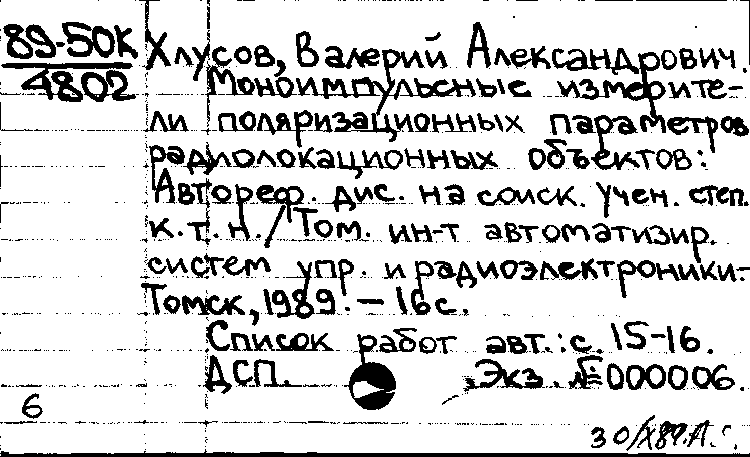 89-50К
4802
Хлусов, Валерий Александрович.
Моноимпульсные измерите-
ли поляризационных параметров
радиолокационных объектов:
Автореф. дис. на соиск. учен. степ.
к.т.н./Том. ин-т автоматизир.
систем упр. и радиоэлектроники.-
Томск, 1989. – 16 с.
Список работ авт.: с. 15-16.
ДСП. Экз. №000006.
6
30/X89.А.